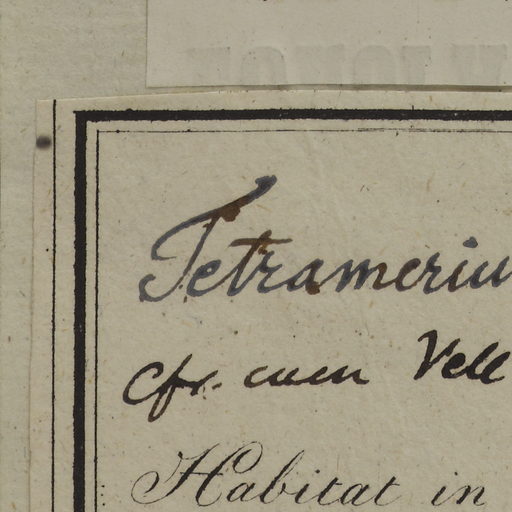 Tetrameriu
Cfr. cum Vell
Habitat in